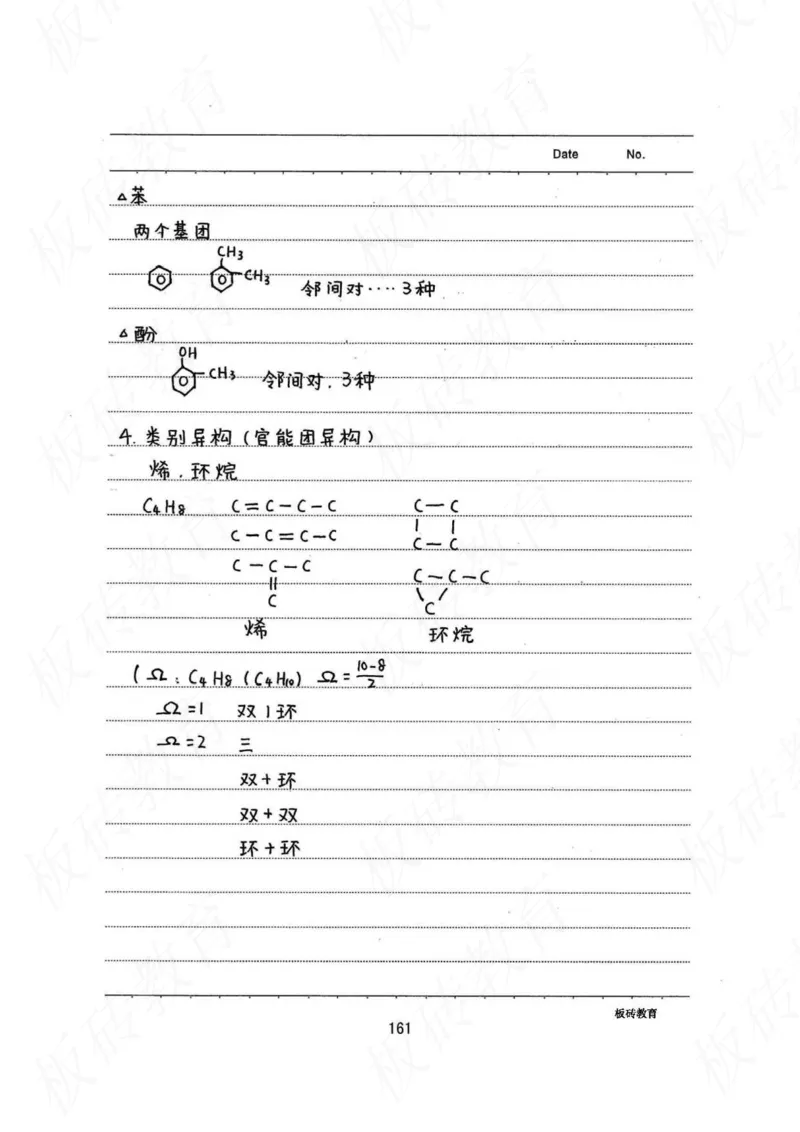 Date No.
△苯
两个基团
CH3
CH3
邻间对····3种
△酚
OH
CH3 邻间对.3种
4.类别异构(官能团异构)
烯.环烷
C4H8 C=C-C-C C-C
| |
C-C=C-C C-C
C-C-C C-C-C
|| \ /
C C
烯 环烷
(Ω:C4H8(C4H10) Ω=10-8/2
Ω=1 双|环
Ω=2 三
双+环
双+双
环+环
板砖教育
161